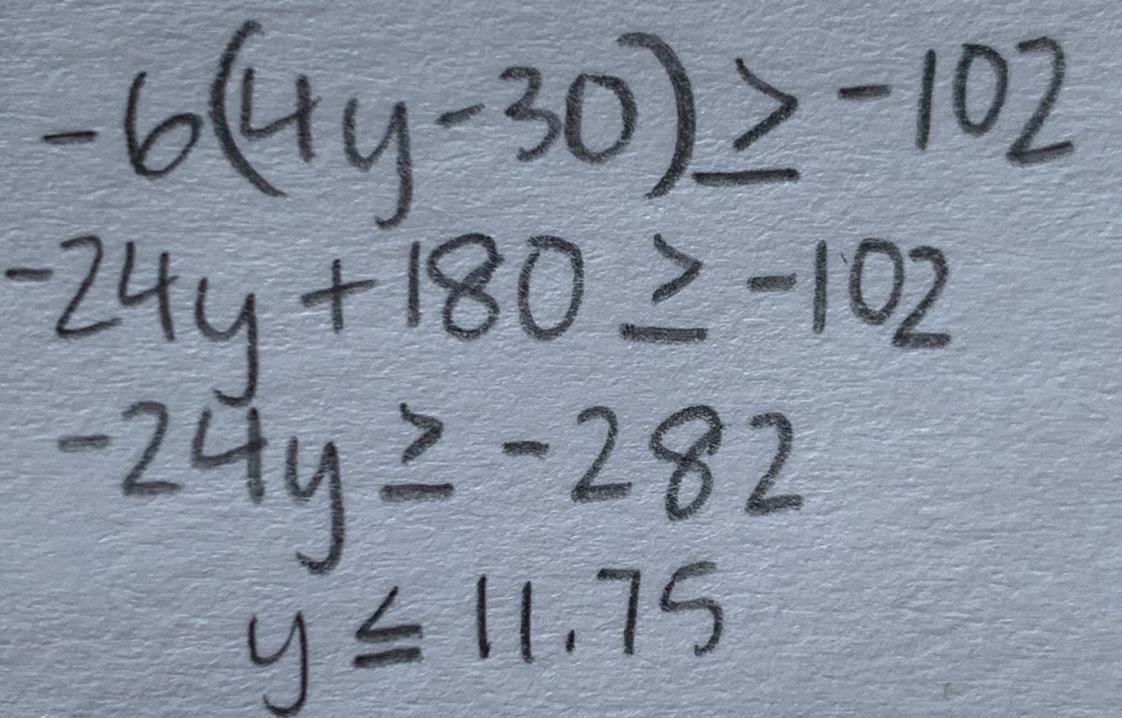 -6(4y-30)≥-102
-24y+180≥-102
-24y≥-282
y≤11.75